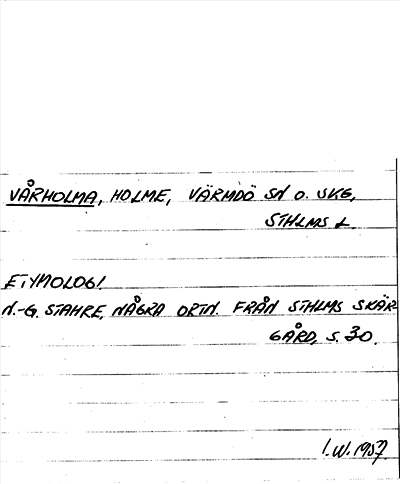 VÅRHOLMA, HOLME, VÄRMDÖ SN O. SKG,
STHLMS L.
ETYMOLOGI.
N.-G. STAHRE, NÅGRA ORTN. FRÅN STHLMS SKÄR-
GÅRD, S. 30.
I.W. 1957.